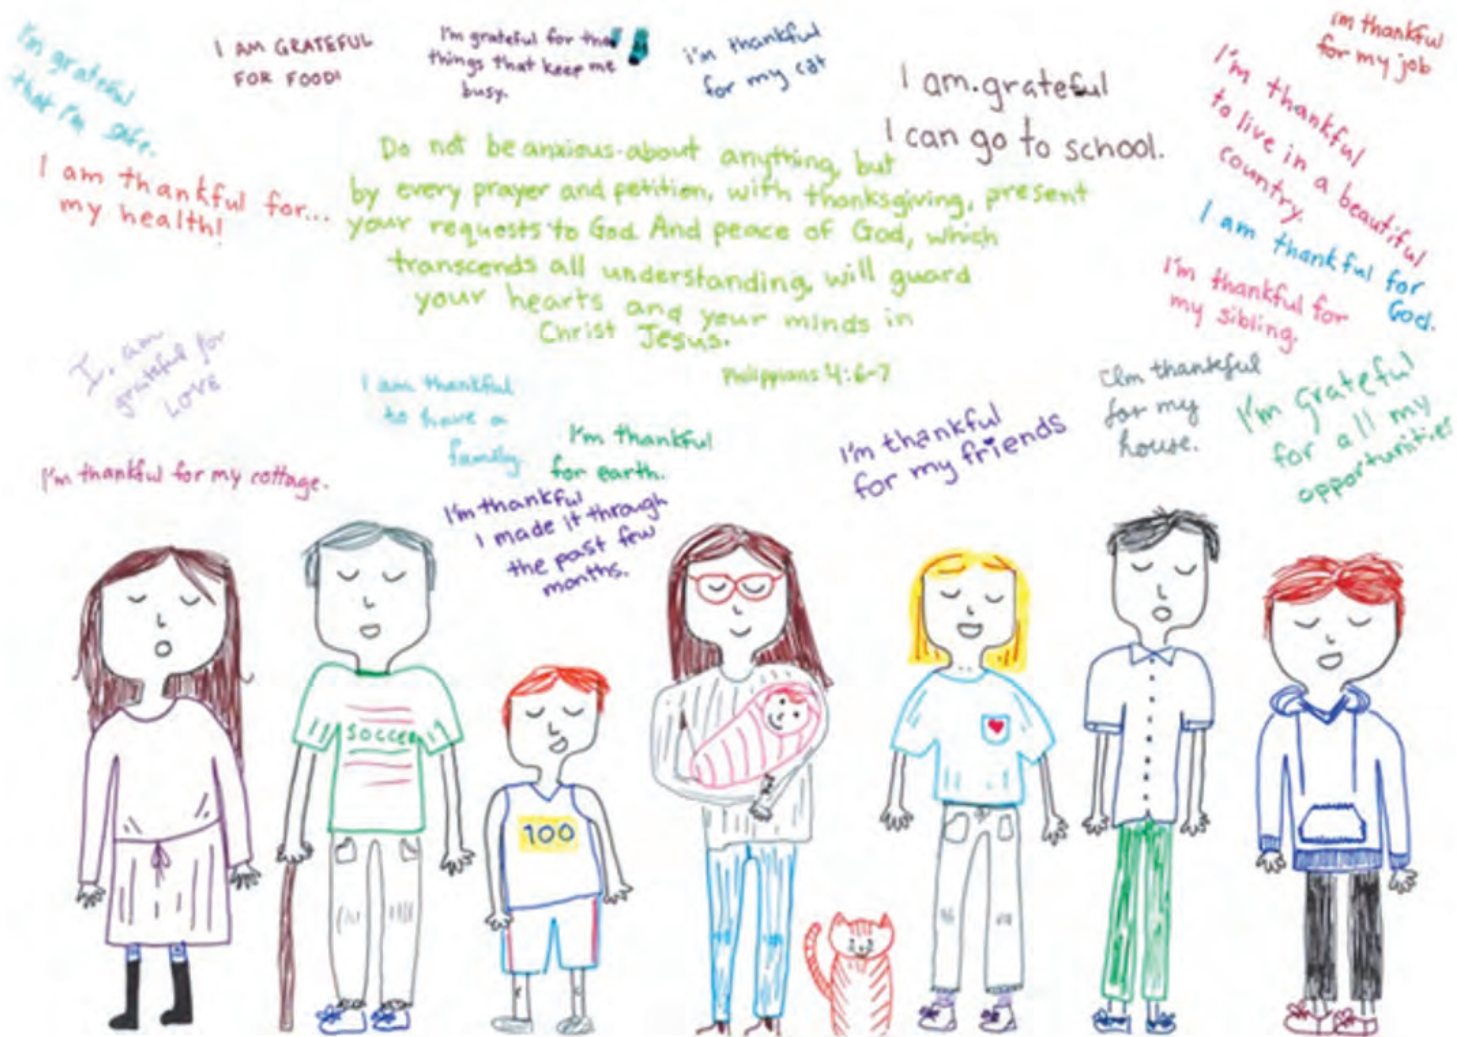 I'm grateful
that I'm safe.
I AM GRATEFUL
FOR FOOD!
I'm grateful for the
things that keep me
busy.
i'm thankful
for my cat
I am grateful
I can go to school.
I'm thankful
for my job
I'm thankful
to live in a beautiful
country.
I am thankful for...
my health!
Do not be anxious about anything, but
by every prayer and petition, with thanksgiving, present
your requests to God. And peace of God, which
transcends all understanding, will guard
your hearts and your minds in
Christ Jesus.
Philippians 4:6-7
I am thankful for
God.
I'm thankful for
my sibling.
I. am
grateful for
LOVE
I am thankful
to have a
family
I'm thankful
for earth.
I'm thankful
for my friends
I'm thankful
for my
house.
I'm grateful
for all my
opportunities
I'm thankful for my cottage.
I'm thankful
I made it through
the past few
months.
SOCCER
100